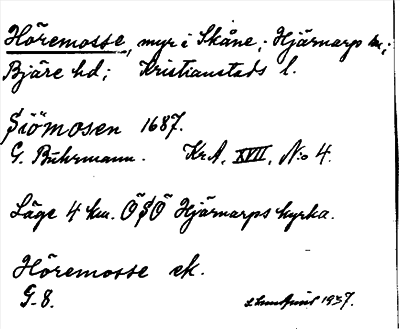 Höremosse, myr i Skåne; Hjärnarps sn;
Bjäre hd; Kristianstads l.
Siömosen 1687.
G. Buhrmann. KrA, XVII, N:o 4.
Läge 4 km. ÖSÖ Hjärnarps kyrka.
Höremosse ek.
G-8. 1937.